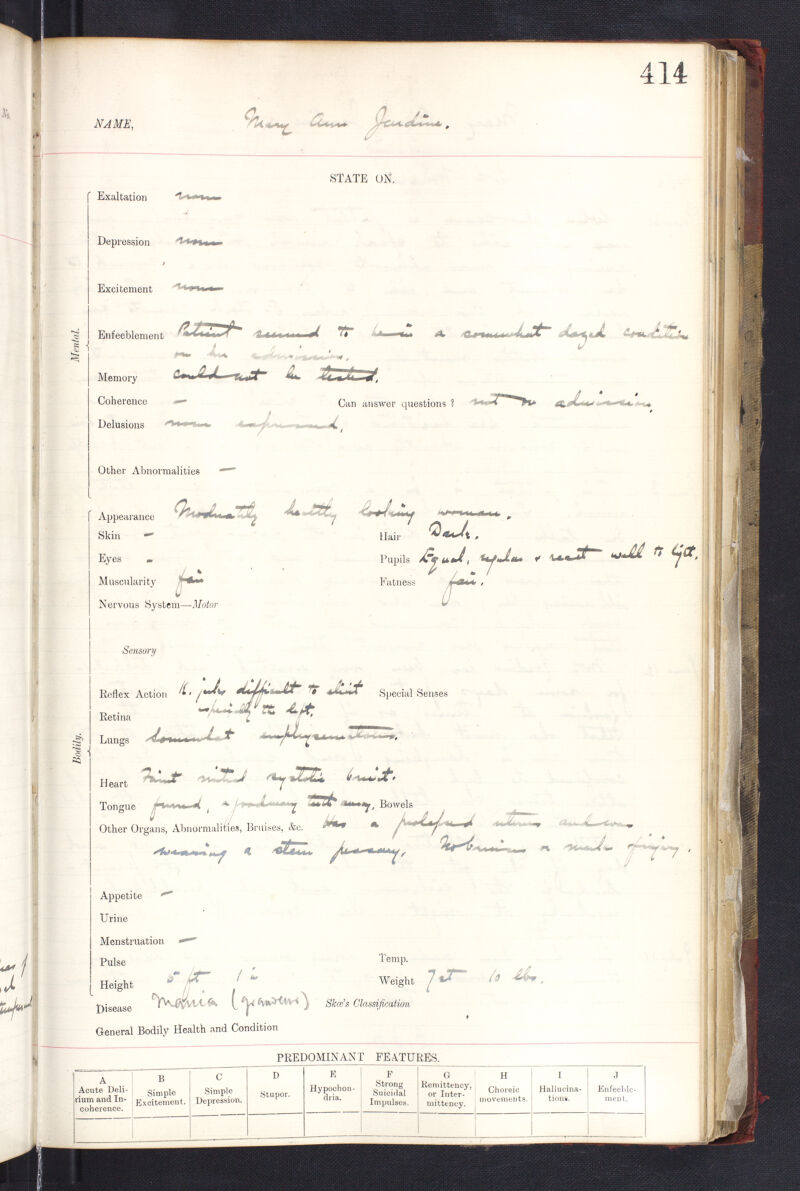 414
No.
NAME, Mary Ann Jardine.
STATE ON.
Mental.
Exaltation none
Depression none
Excitement none
Enfeeblement Patient seemed to be in a somewhat dazed condition
on her admission.
Memory Could not be tested.
Coherence — Can answer questions ? not on admission.
Delusions none expressed.
Other Abnormalities —
Bodily.
Appearance Moderately healthy looking woman.
Skin — Hair Dark.
Eyes - Pupils Equal, regular & react well to light.
Muscularity fair Fatness fair.
Nervous System—Motor
Sensory
Reflex Action K. jerks difficult to elicit Special Senses
especially the left.
Retina
Lungs Somewhat emphysematous.
Heart Faint mitral systolic bruit.
Tongue furred, teeth away. Bowels
Other Organs, Abnormalities, Bruises, &c. Has a prolapsed uterus and was
wearing a stem pessary. No bruises or marks of injury.
Appetite —
Urine
Menstruation —
Pulse Temp.
Height 5 ft 1 in Weight 7 st 10 lbs.
Disease Mania Skae's Classification
General Bodily Health and Condition
PREDOMINANT FEATURES.
A B C D E F G H I J
Acute Delirium and Incoherence. Simple Excitement. Simple Depression. Stupor. Hypochondria. Strong Suicidal Impulses. Remittency, or Intermittency. Choreic movements. Hallucinations. Enfeeblement.